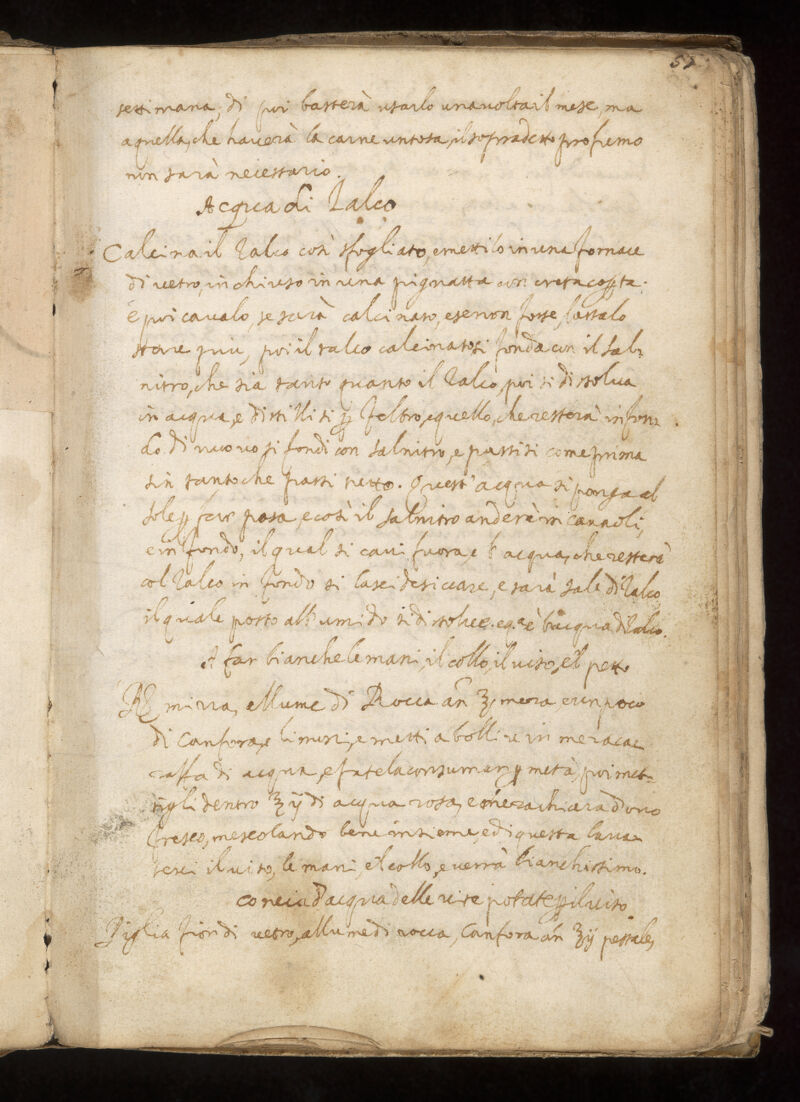 57
settimana, di poi basterà usarlo una volta il mese, ma
a quella, che haverà la carne untosa, il sopradetto profumo
non sarà necessario.
Acqua di Talco
Calcina il Talco così sfogliato, e mettilo in una fornace
di vetro, in chiuso in una pignatta con creta cotta,
e poi cavalo, se sarà calcinato, e se non fosse, lassalo
stare più, poi il talco calcinato si fonda con il sal
nitro, che sia tanto quanto il Talco, poi si dissolva
in acqua, e distillisi p feltro, e quello, che resterà in fon
do di nuovo si fondi con salnitro, e passisi come prima
sin tanto che passi tutto. Quest'acqua si ponga al
sole p far posa, e così il salnitro anderà in cannoli,
e in fondo, il qual si cavi fuora, e l'acqua, che resterà
col Talco in fondo si lasci desiccare, e sarà sale di Talco
il quale posto all'umido si dissolve, è l'acqua di Talco.
A far bianche le mani, il collo, il viso, e'l petto
R mirra, allume di Rocca an ʒ meza e un poco
di Canfora, e metti a bollire in meza ca
raffa di acqua, e fatela consumar p metà, poi met
tigli dentro ʒ ij di acqua rosa, e meza chiara d'ovo
fresco, mescolando bene insieme, e di questa lava
teci il viso, le mani, e'l collo, e verrà bianchissimo.
Concia d'acqua delle vite potate p il viso
Piglia fior di vetro, allume di rocca, Canfora an ʒ ij pestale,